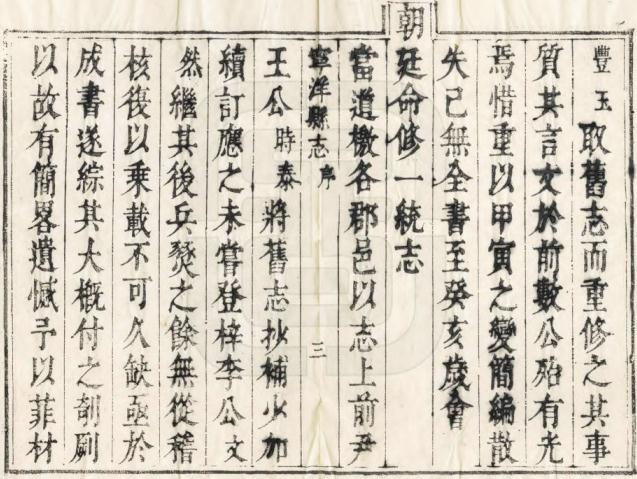 豐玉取舊志而重修之其事
質其言文於前數公殆有光
焉惜重以甲寅之變簡編散
失已無全書至癸亥歲會
朝
廷命修一統志
當道檄各郡邑以志上前尹
寧洋縣志 序 三
王公時泰將舊志抄補少加
續訂應之未嘗登梓李公文
然繼其後兵燹之餘無從稽
核後以乗載不可久缺亟於
成書遂綜其大概付之剞劂
以故有簡畧遺憾予以菲材